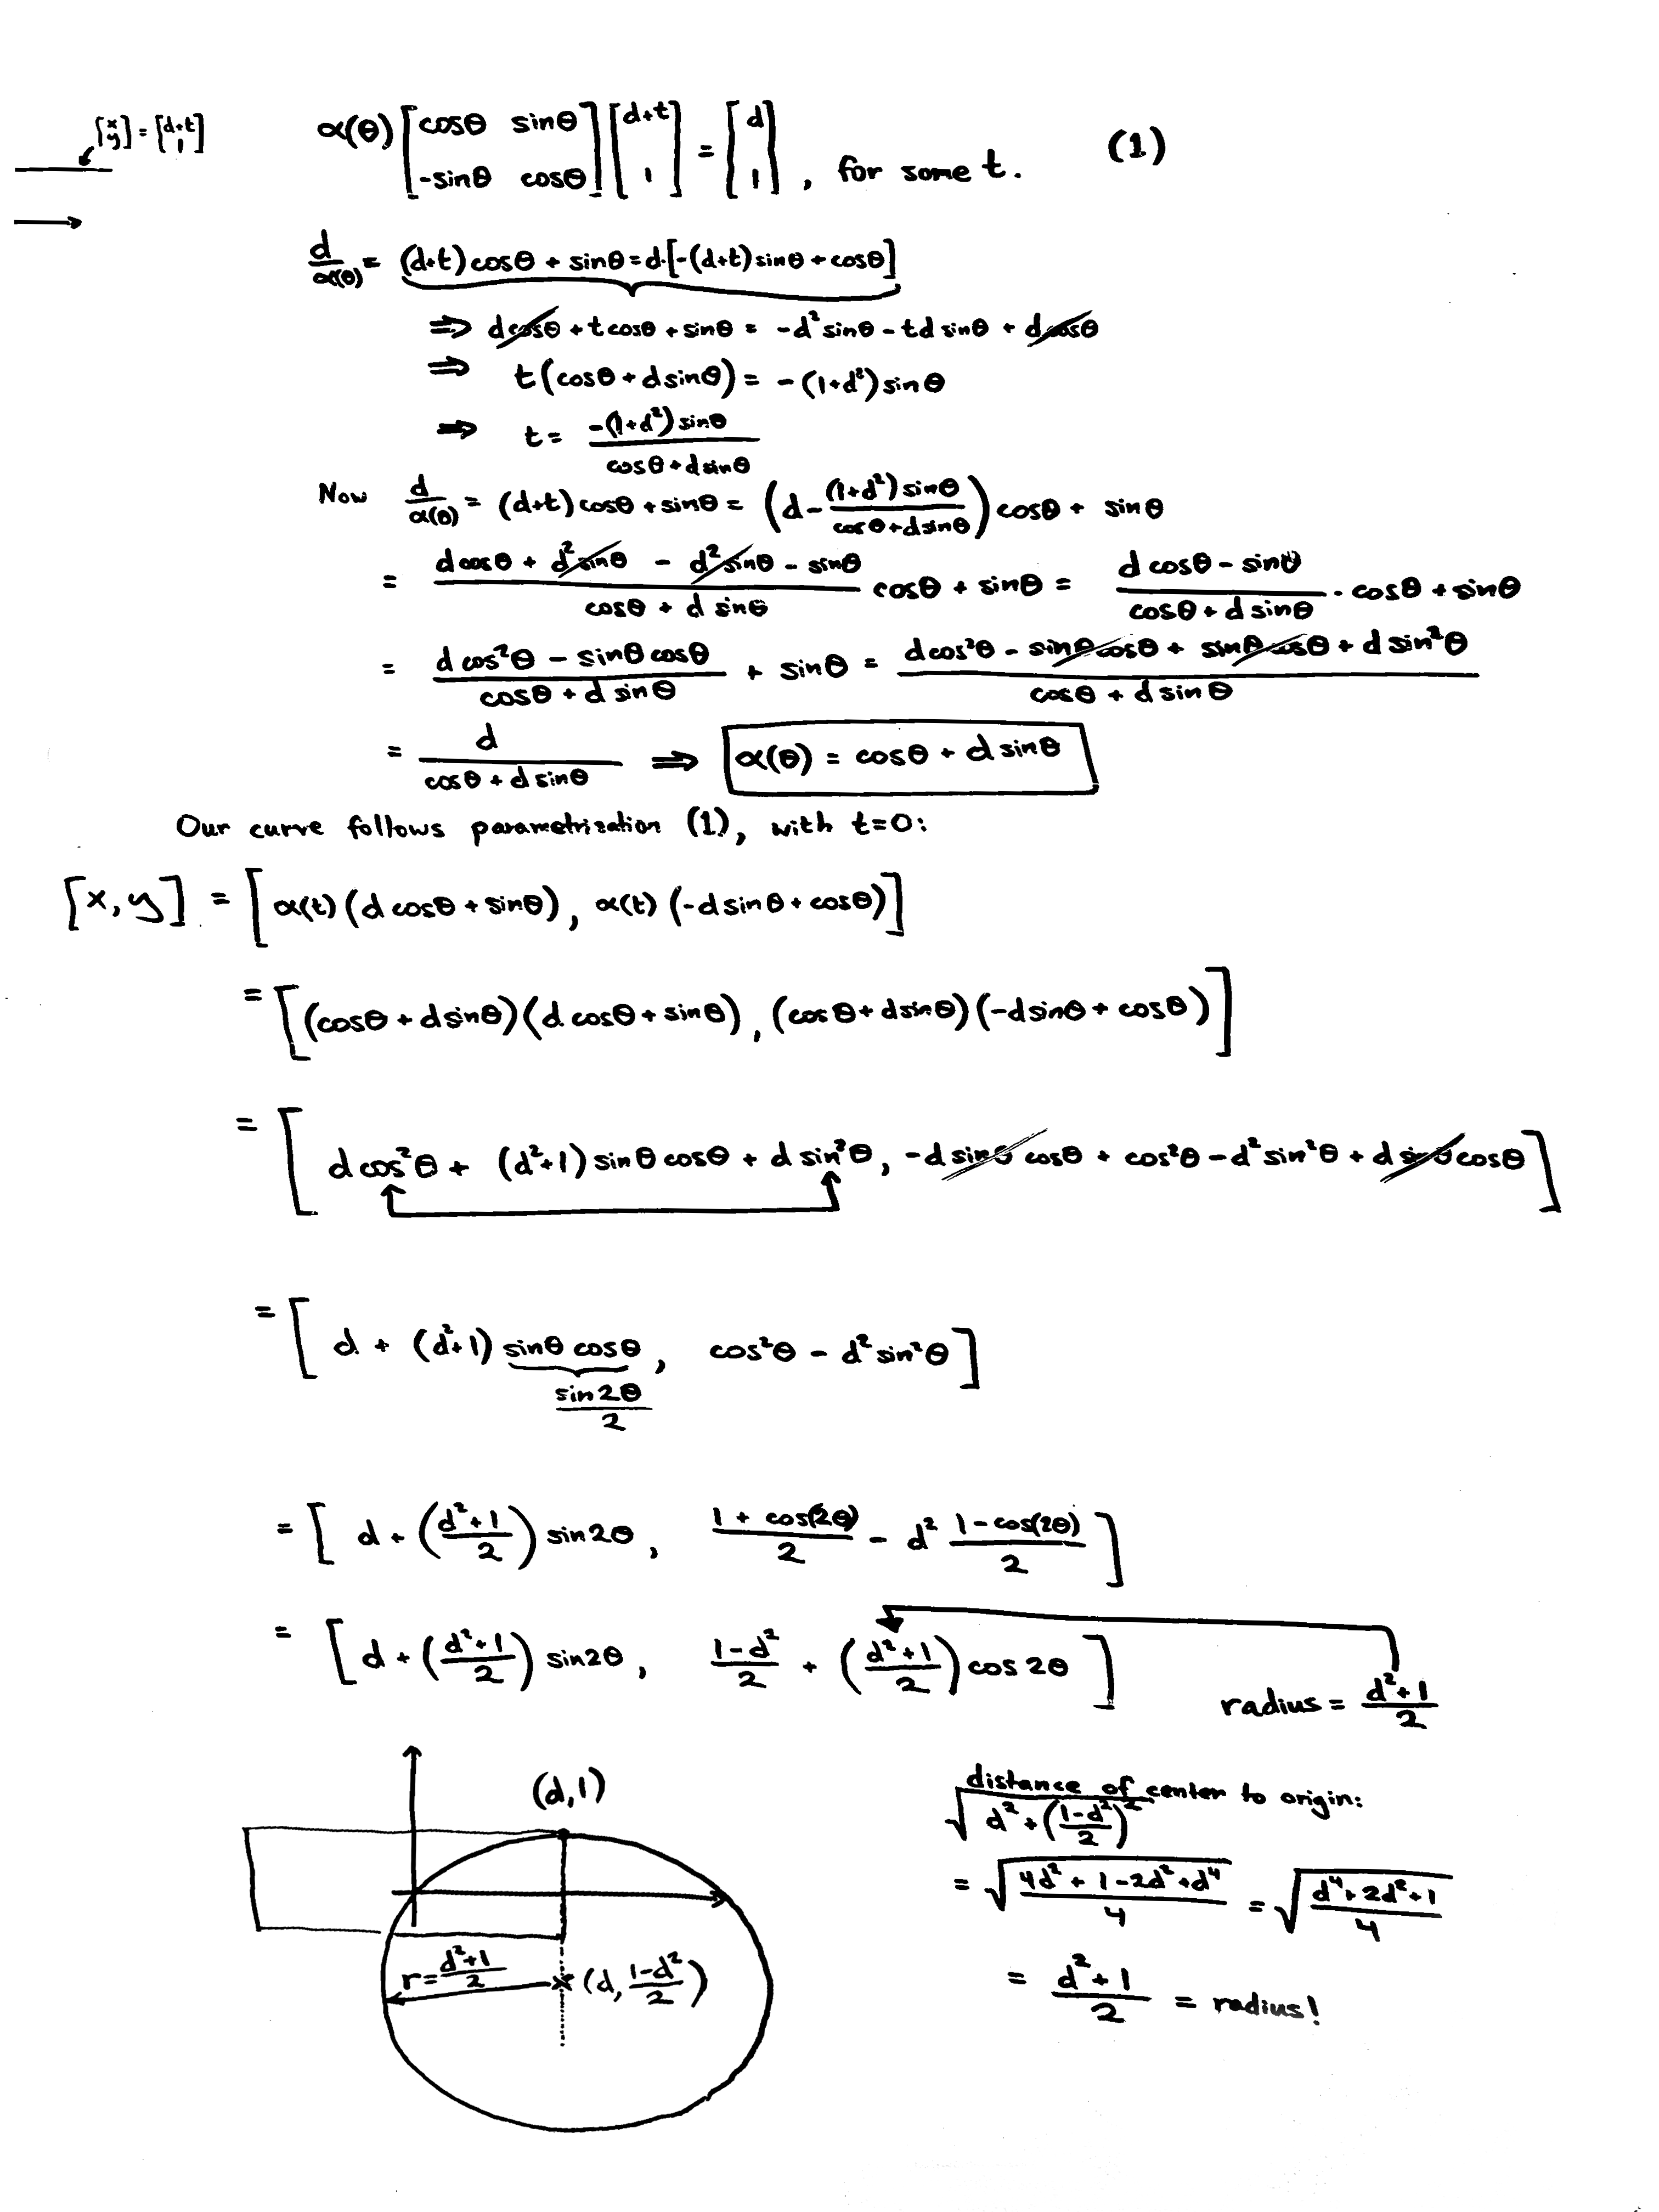 [x y] = [d+t 1]
α(θ) [cosθ sinθ -sinθ cosθ] [d+t 1] = [d 1], for some t. (1)
d/α(θ) = (d+t)cosθ + sinθ = d·[-(d+t)sinθ + cosθ]
⇒ dcosθ + tcosθ + sinθ = -d²sinθ - td sinθ + dcosθ
⇒ t(cosθ + dsinθ) = -(1+d²)sinθ
⇒ t = -(1+d²)sinθ / cosθ+dsinθ
Now d/α(θ) = (d+t)cosθ + sinθ = (d - (1+d²)sinθ / cosθ+dsinθ) cosθ + sinθ
= dcosθ + d²sinθ - d²sinθ - sinθ / cosθ + d sinθ cosθ + sinθ = d cosθ - sinθ / cosθ + d sinθ · cosθ + sinθ
= d cos²θ - sinθ cosθ / cosθ + d sinθ + sinθ = dcos²θ - sinθcosθ + sinθcosθ + d sin²θ / cosθ + d sinθ
= d / cosθ + d sinθ ⇒ α(θ) = cosθ + d sinθ
Our curve follows parametrization (1), with t=0:
[x, y] = [α(t)(d cosθ + sinθ), α(t)(-d sinθ + cosθ)]
= [(cosθ + dsinθ)(d cosθ + sinθ), (cosθ + dsinθ)(-dsinθ + cosθ)]
= [d cos²θ + (d²+1) sinθ cosθ + d sin²θ, -d sinθ cosθ + cos²θ - d² sin²θ + d sinθ cosθ]
= [d + (d²+1) sinθ cosθ, cos²θ - d² sin²θ]
sin2θ / 2
= [d + (d²+1 / 2) sin2θ, 1 + cos(2θ) / 2 - d² 1 - cos(2θ) / 2]
= [d + (d²+1 / 2) sin2θ, 1-d² / 2 + (d²+1 / 2) cos 2θ]
radius = d²+1 / 2
(d,1)
r = d²+1 / 2
(d, 1-d² / 2)
distance of center to origin:
√d² + (1-d² / 2)²
= √4d² + 1 - 2d² + d⁴ / 4 = √d⁴ + 2d² + 1 / 4
= d²+1 / 2 = radius!